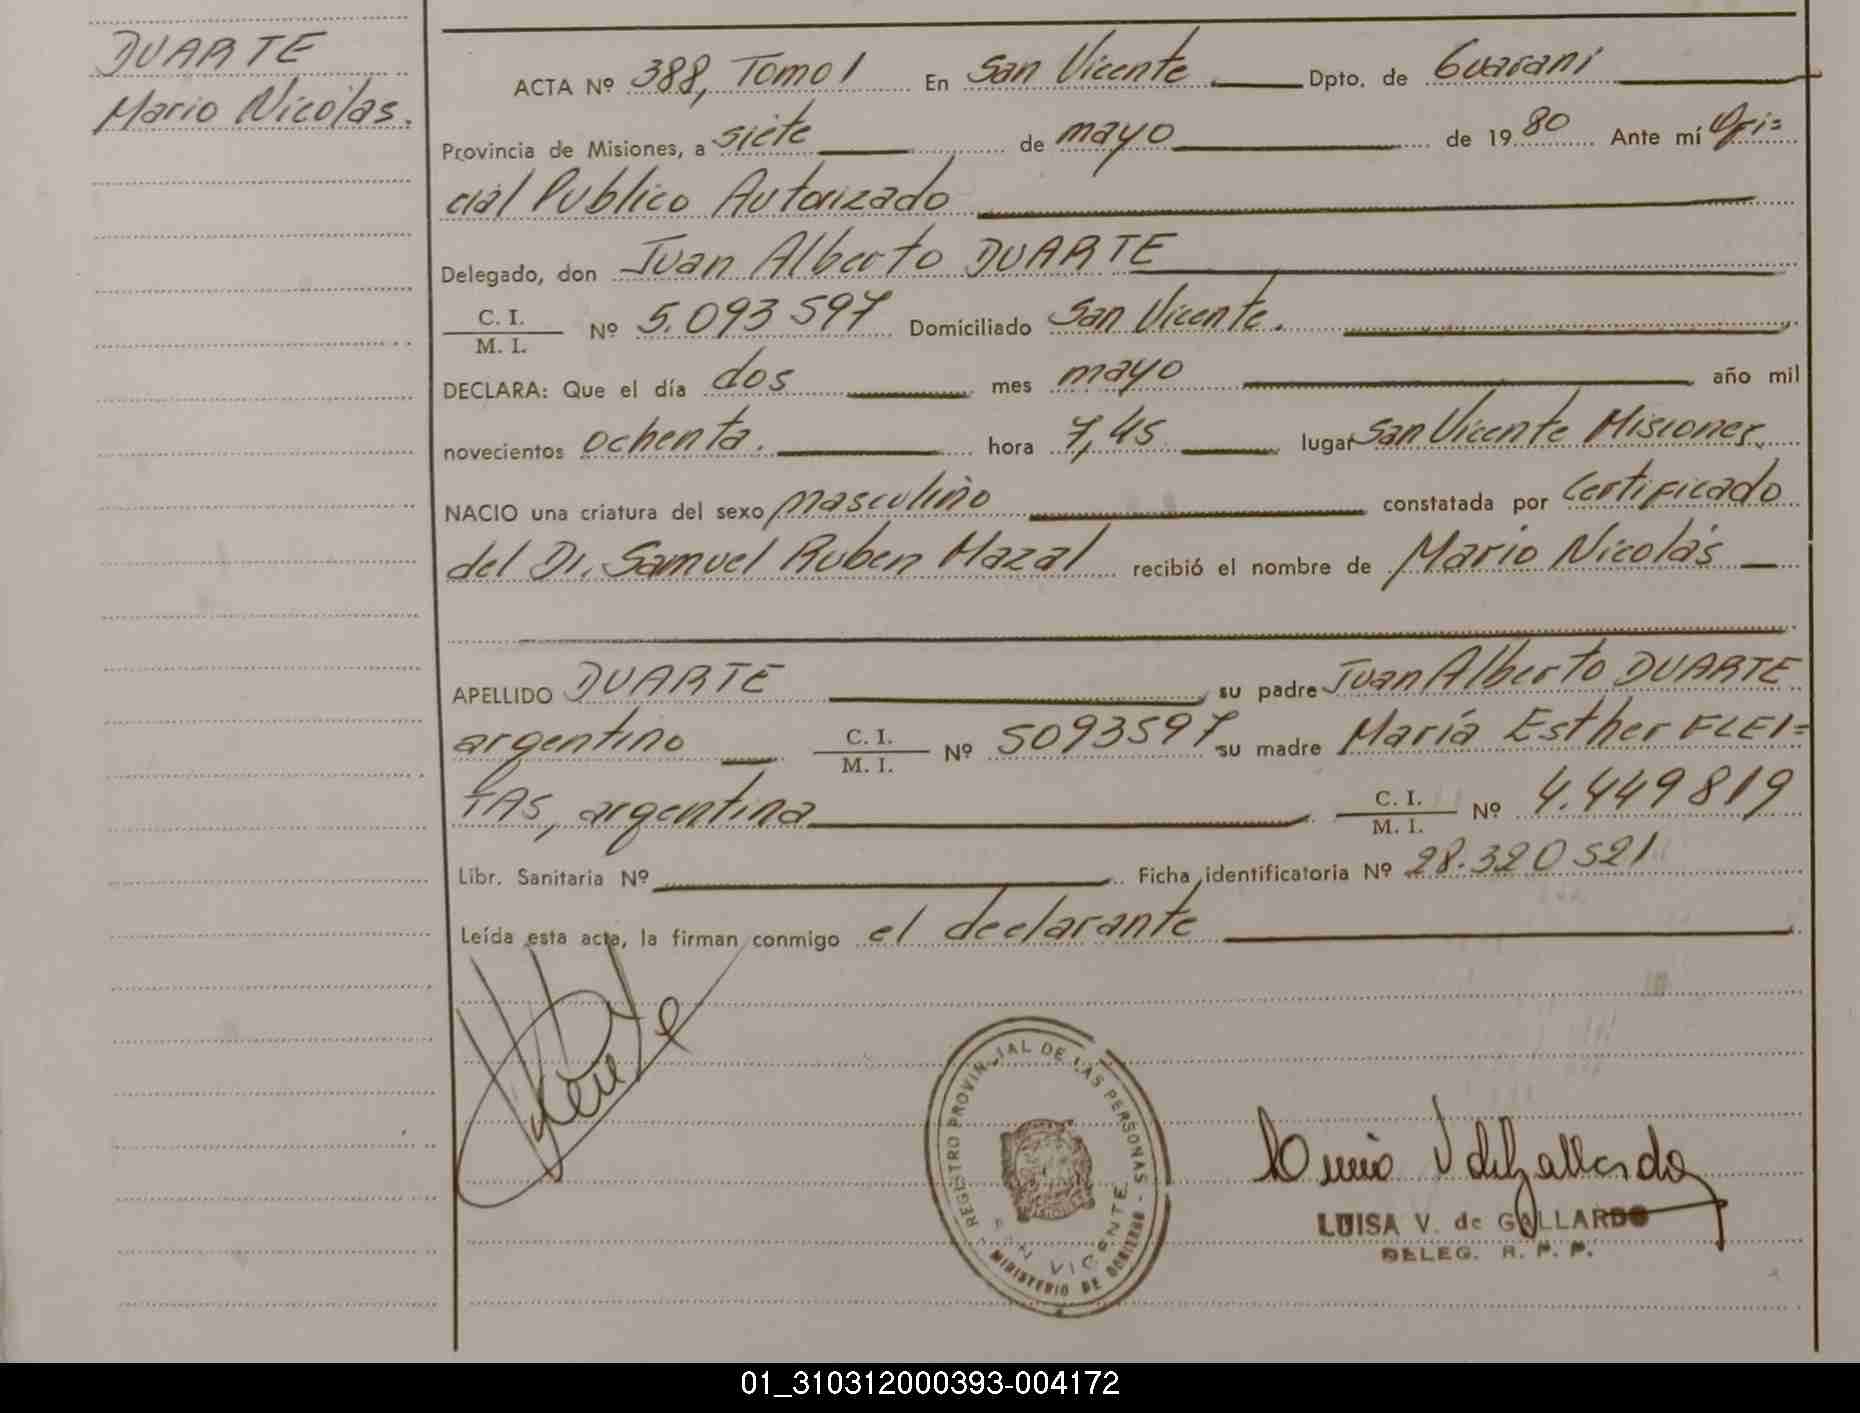 DUARTE
Mario Nicolás.
ACTA Nº 388, Tomo I En San Vicente Dpto. de Guaraní
Provincia de Misiones, a siete de mayo de 1980 Ante mí Ofi=
cial Publico Autorizado
Delegado, don Juan Alberto DUARTE
C. I.
M. I. Nº 5.093 597 Domiciliado San Vicente.
DECLARA: Que el día dos mes mayo año mil
novecientos ochenta. hora 7,45 lugar San Vicente Misiones.
NACIO una criatura del sexo masculino constatada por Certificado
del Dr. Samuel Ruben Mazal recibió el nombre de Mario Nicolás
APELLIDO DUARTE su padre Juan Alberto DUARTE
argentino C. I.
M. I. Nº 5093597 su madre María Esther FLEI=
TAS, argentina C. I.
M. I. Nº 4.449819
Libr. Sanitaria Nº Ficha identificatoria Nº 28.320521
Leída esta acta, la firman conmigo el declarante
REGISTRO PROVINCIAL DE LAS PERSONAS -
SAN VICENTE
MINISTERIO DE GOBIERNO
LUISA V. de GALLARDO
DELEG. R. P. P.
01_310312000393-004172